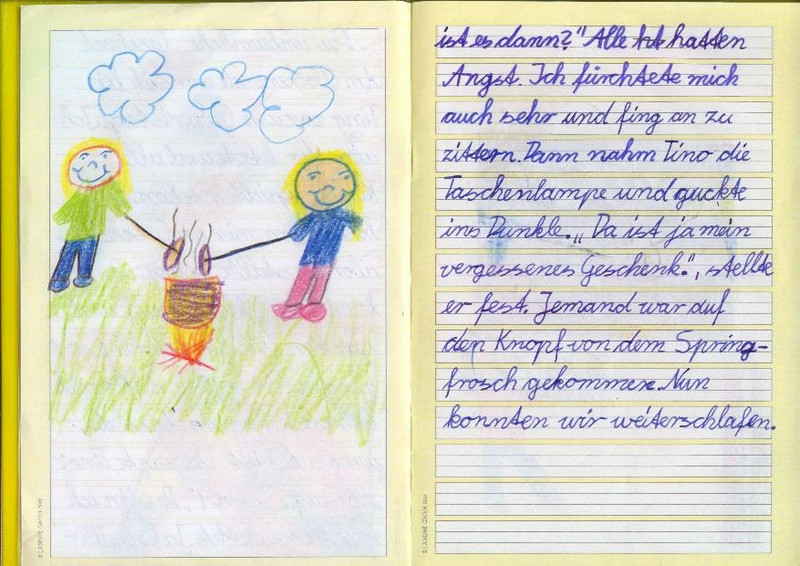 ist es dann?" Alle ht hatten
Angst. Ich fürchtete mich
auch sehr und fing an zu
zittern. Dann nahm Tino die
Taschenlampe und guckte
ins Dunkle. „Da ist ja mein
vergessenes Geschenk.", stellte
er fest. Jemand war auf
den Knopf von dem Spring-
frosch gekommen. Nun
konnten wir weiterschlafen.